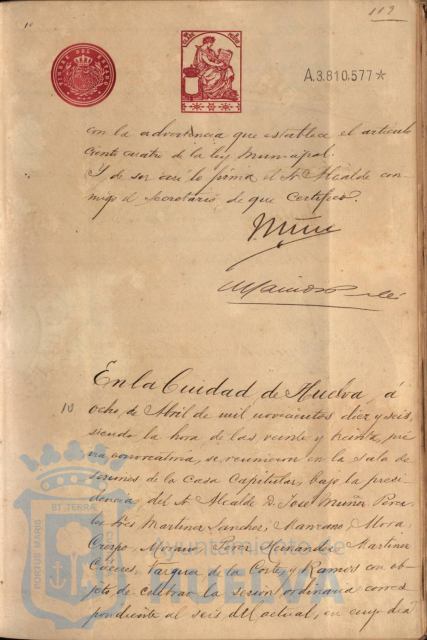 10
112
A.3.810.577*
con la advertencia que establece el artículo
Ciento cuatro de la ley Municipal.
Y de ser así lo firma el Sr. Alcalde con-
migo el Secretario de que Certifico.
En la Ciudad de Huelva, á
10
ocho de Abril de mil novecientos diez y seis
siendo la hora de las veinte y treinta, prè
via convocatoria, se reunieron en la Sala de
sesiones de la Casa Capitular, bajo la presi-
dencia del Sr. Alcalde D. José Muñiz
los Sres Martinez Sanchez, Manzano, Mora,
Crespo, Moreno, Perez Hernandez, Martinez
Cáceres, Vazquez de la Corte y Ramos con ob-
jeto de celebrar la sesion ordinaria corres
pondiente al seis del actual, en cuyo dia
BT TERRÆ
PORTUS MARIS
Ayuntamiento de
HUELVA